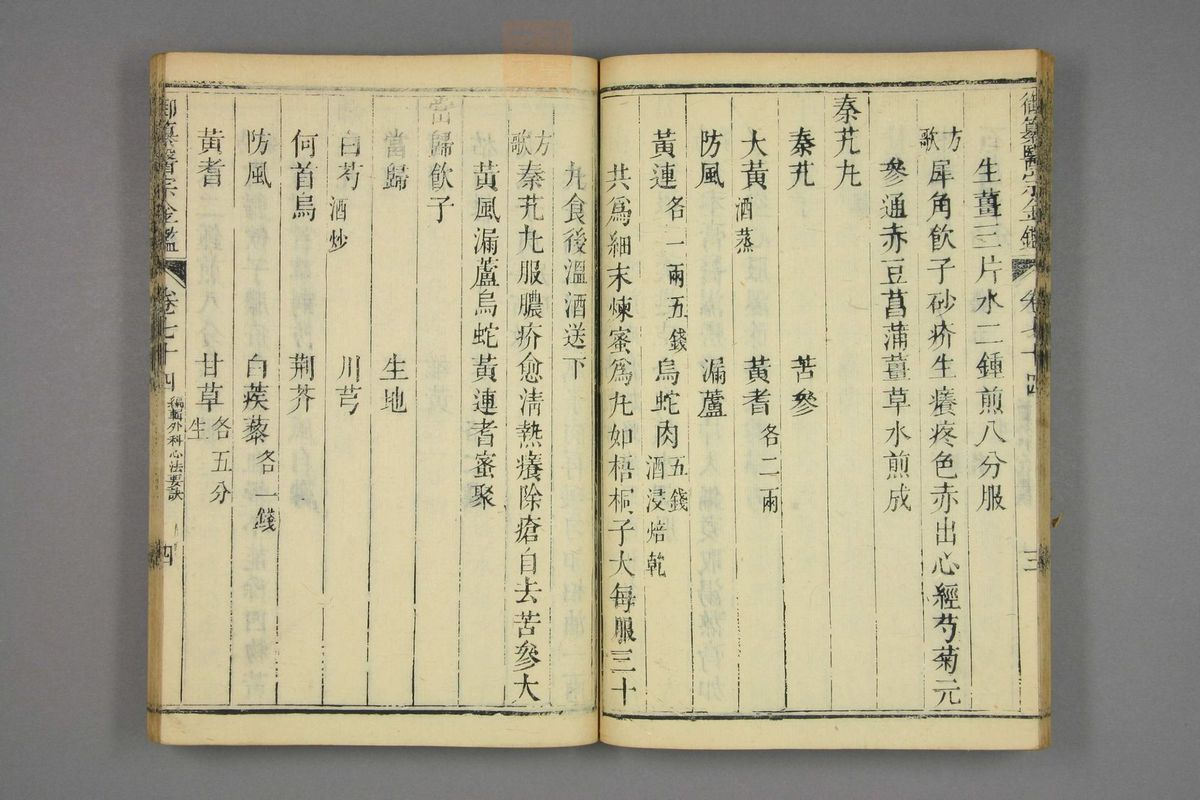 御纂醫宗金鑑 卷七十四 三
生薑三片水二鍾煎八分服
方歌 犀角飲子砂疥生癢疼色赤出心經芍菊元
參通赤豆菖蒲薑草水煎成
秦艽丸
秦艽 苦參
大黃酒蒸 黃耆各二兩
防風 漏蘆
黃連各一兩五錢 烏蛇肉五錢酒浸焙乾
共爲細末煉蜜爲丸如梧桐子大每服三十
丸食後溫酒送下
方歌 秦艽丸服膿疥愈淸熱癢除瘡自去苦參大
黃風漏蘆烏蛇黃連耆蜜聚
當歸飲子
當歸 生地
白芍酒炒 川芎
何首烏 荊芥
防風 白蒺藜各一錢
黃耆 甘草生各五分
御纂醫宗金鑑 卷七十四 編輯外科心法要訣 四